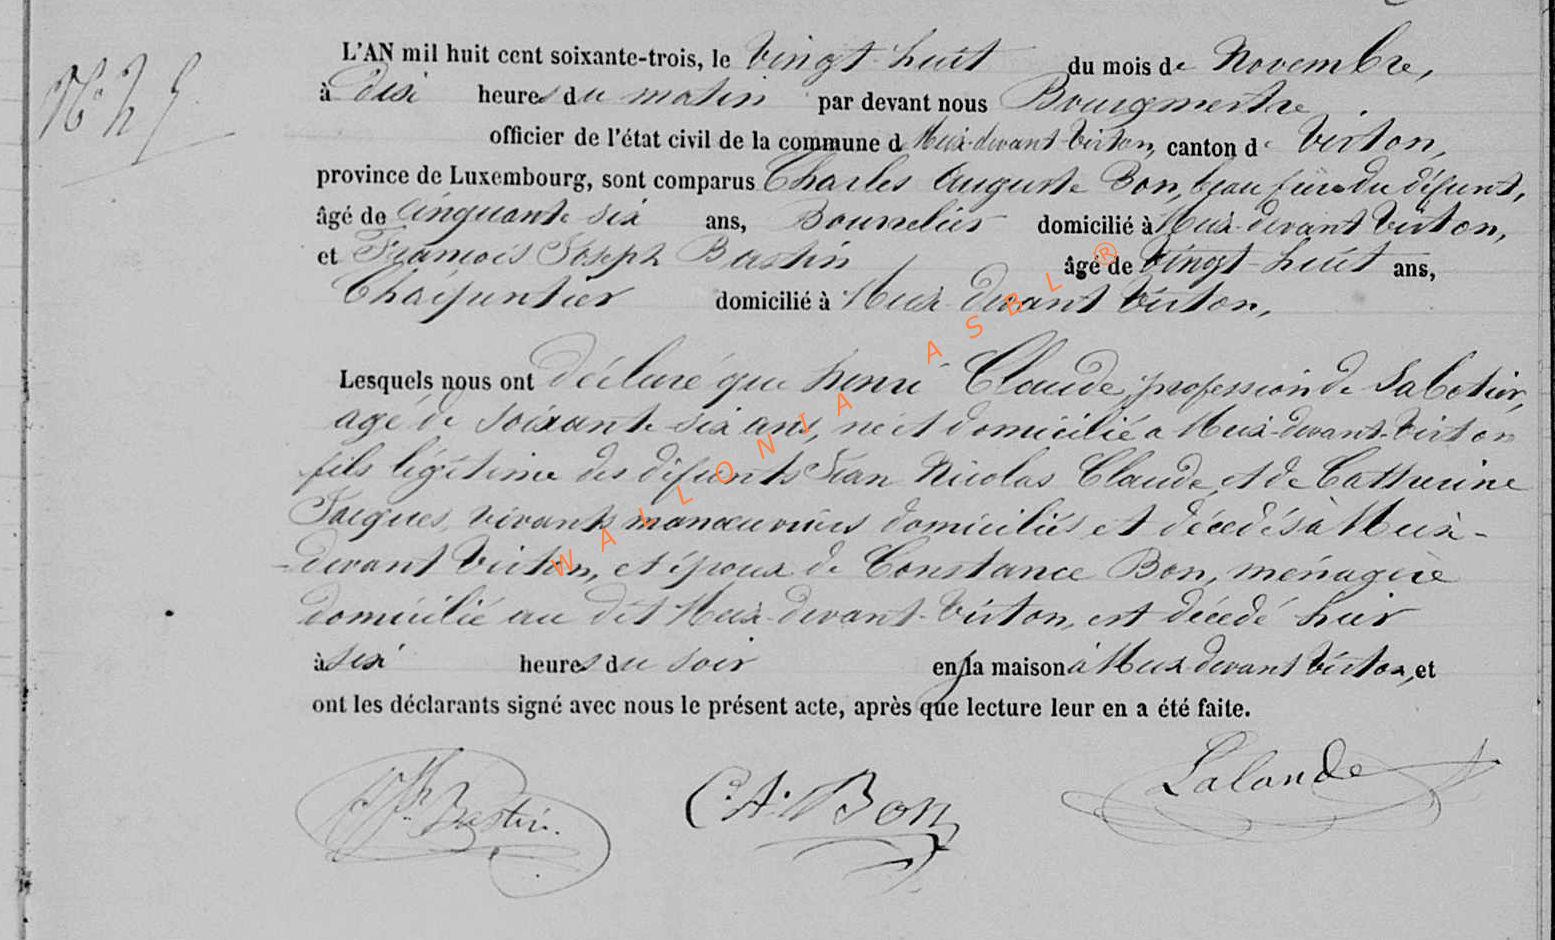 N° 25
L'AN mil huit cent soixante-trois, le vingt-huit du mois de Novembre,
à dix heures du matin par devant nous Bourgmestre
officier de l'état civil de la commune d Meix-devant-Virton, canton de Virton,
province de Luxembourg, sont comparus Charles Auguste Bon, beau frère du défunt,
âgé de cinquante six ans, Bourrelier domicilié à Meix-devant Virton,
et François Joseph Bastin âgé de vingt-huit ans,
Charpentier domicilié à Meix-devant Virton,
Lesquels nous ont déclaré que henri Claude, profession de Sabotier,
agé de soixante-six ans, né et domicilié à Meix-devant-Virton
fils légitime des défunts Jean Nicolas Claude et de Catherine
Jacques, vivants manœuvriers domiciliés et décédés à Meix-
-devant Virton, et époux de Constance Bon, ménagère
domicilié au dit Meix-devant-Virton, est décédé hier
à six heures du soir en la maison à Meix-devant Virton, et
ont les déclarants signé avec nous le présent acte, après que lecture leur en a été faite.
Bastin. C. A. Bon Lalande
WALLONIA ASBL ®